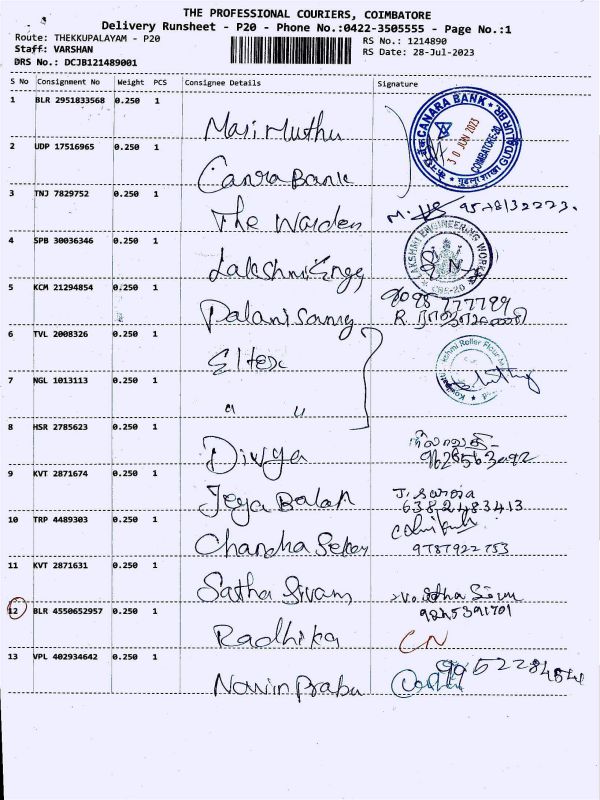 THE PROFESSIONAL COURIERS, COIMBATORE
Delivery Runsheet - P20 - Phone No.:0422-3505555 - Page No.:1
Route: THEKKUPALAYAM - P20
Staff: VARSHAN
DRS No.: DCJB121489001
RS No.: 1214890
RS Date: 28-Jul-2023
S No Consignment No Weight PCS Consignee Details Signature
1 BLR 2951833568 0.250 1 Mari Muthu
CANARA BANK
30 JUN 2023
COIMBATORE-20
2 UDP 17516965 0.250 1 Canra Bank
3 TNJ 7829752 0.250 1 The Warden
4 SPB 30036346 0.250 1 Lakshmi Engg
LAKSHMI ENGINEERING WORKS
CBE-20
5 KCM 21294854 0.250 1 Palani Samy
9098 777789
6 TVL 2008326 0.250 1 Eltex
Lakshmi Roller Flour
7 NGL 1013113 0.250 1 " "
8 HSR 2785623 0.250 1 Divya
9 KVT 2871674 0.250 1 Jeya Balan
J. Saroja
6382483413
10 TRP 4489303 0.250 1 Chandra Seker
9787922753
11 KVT 2871631 0.250 1 Satha Sivam
12 BLR 4550652957 0.250 1 Radhika CN
13 VPL 402934642 0.250 1 Navin Prabu